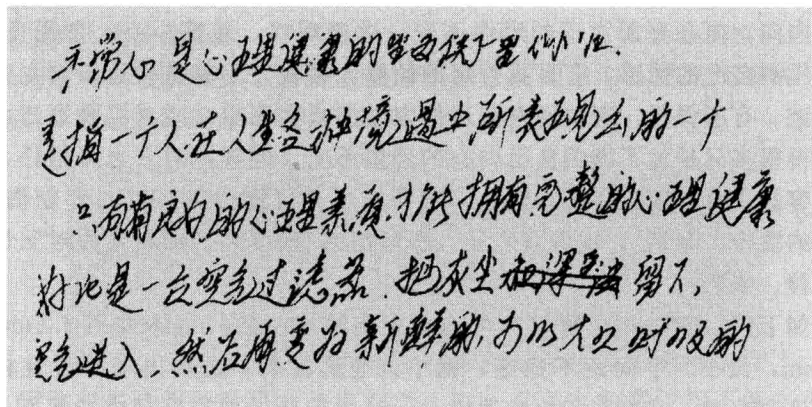 平常心是心理健康的
是指一个人在人生各种境遇中所表现出的一个
只有有良好的心理素质,才能拥有完整的心理健康
好比是一台空气过滤器,把灰尘留下,
空气进入,然后再变为新鲜的,可以大口呼吸的